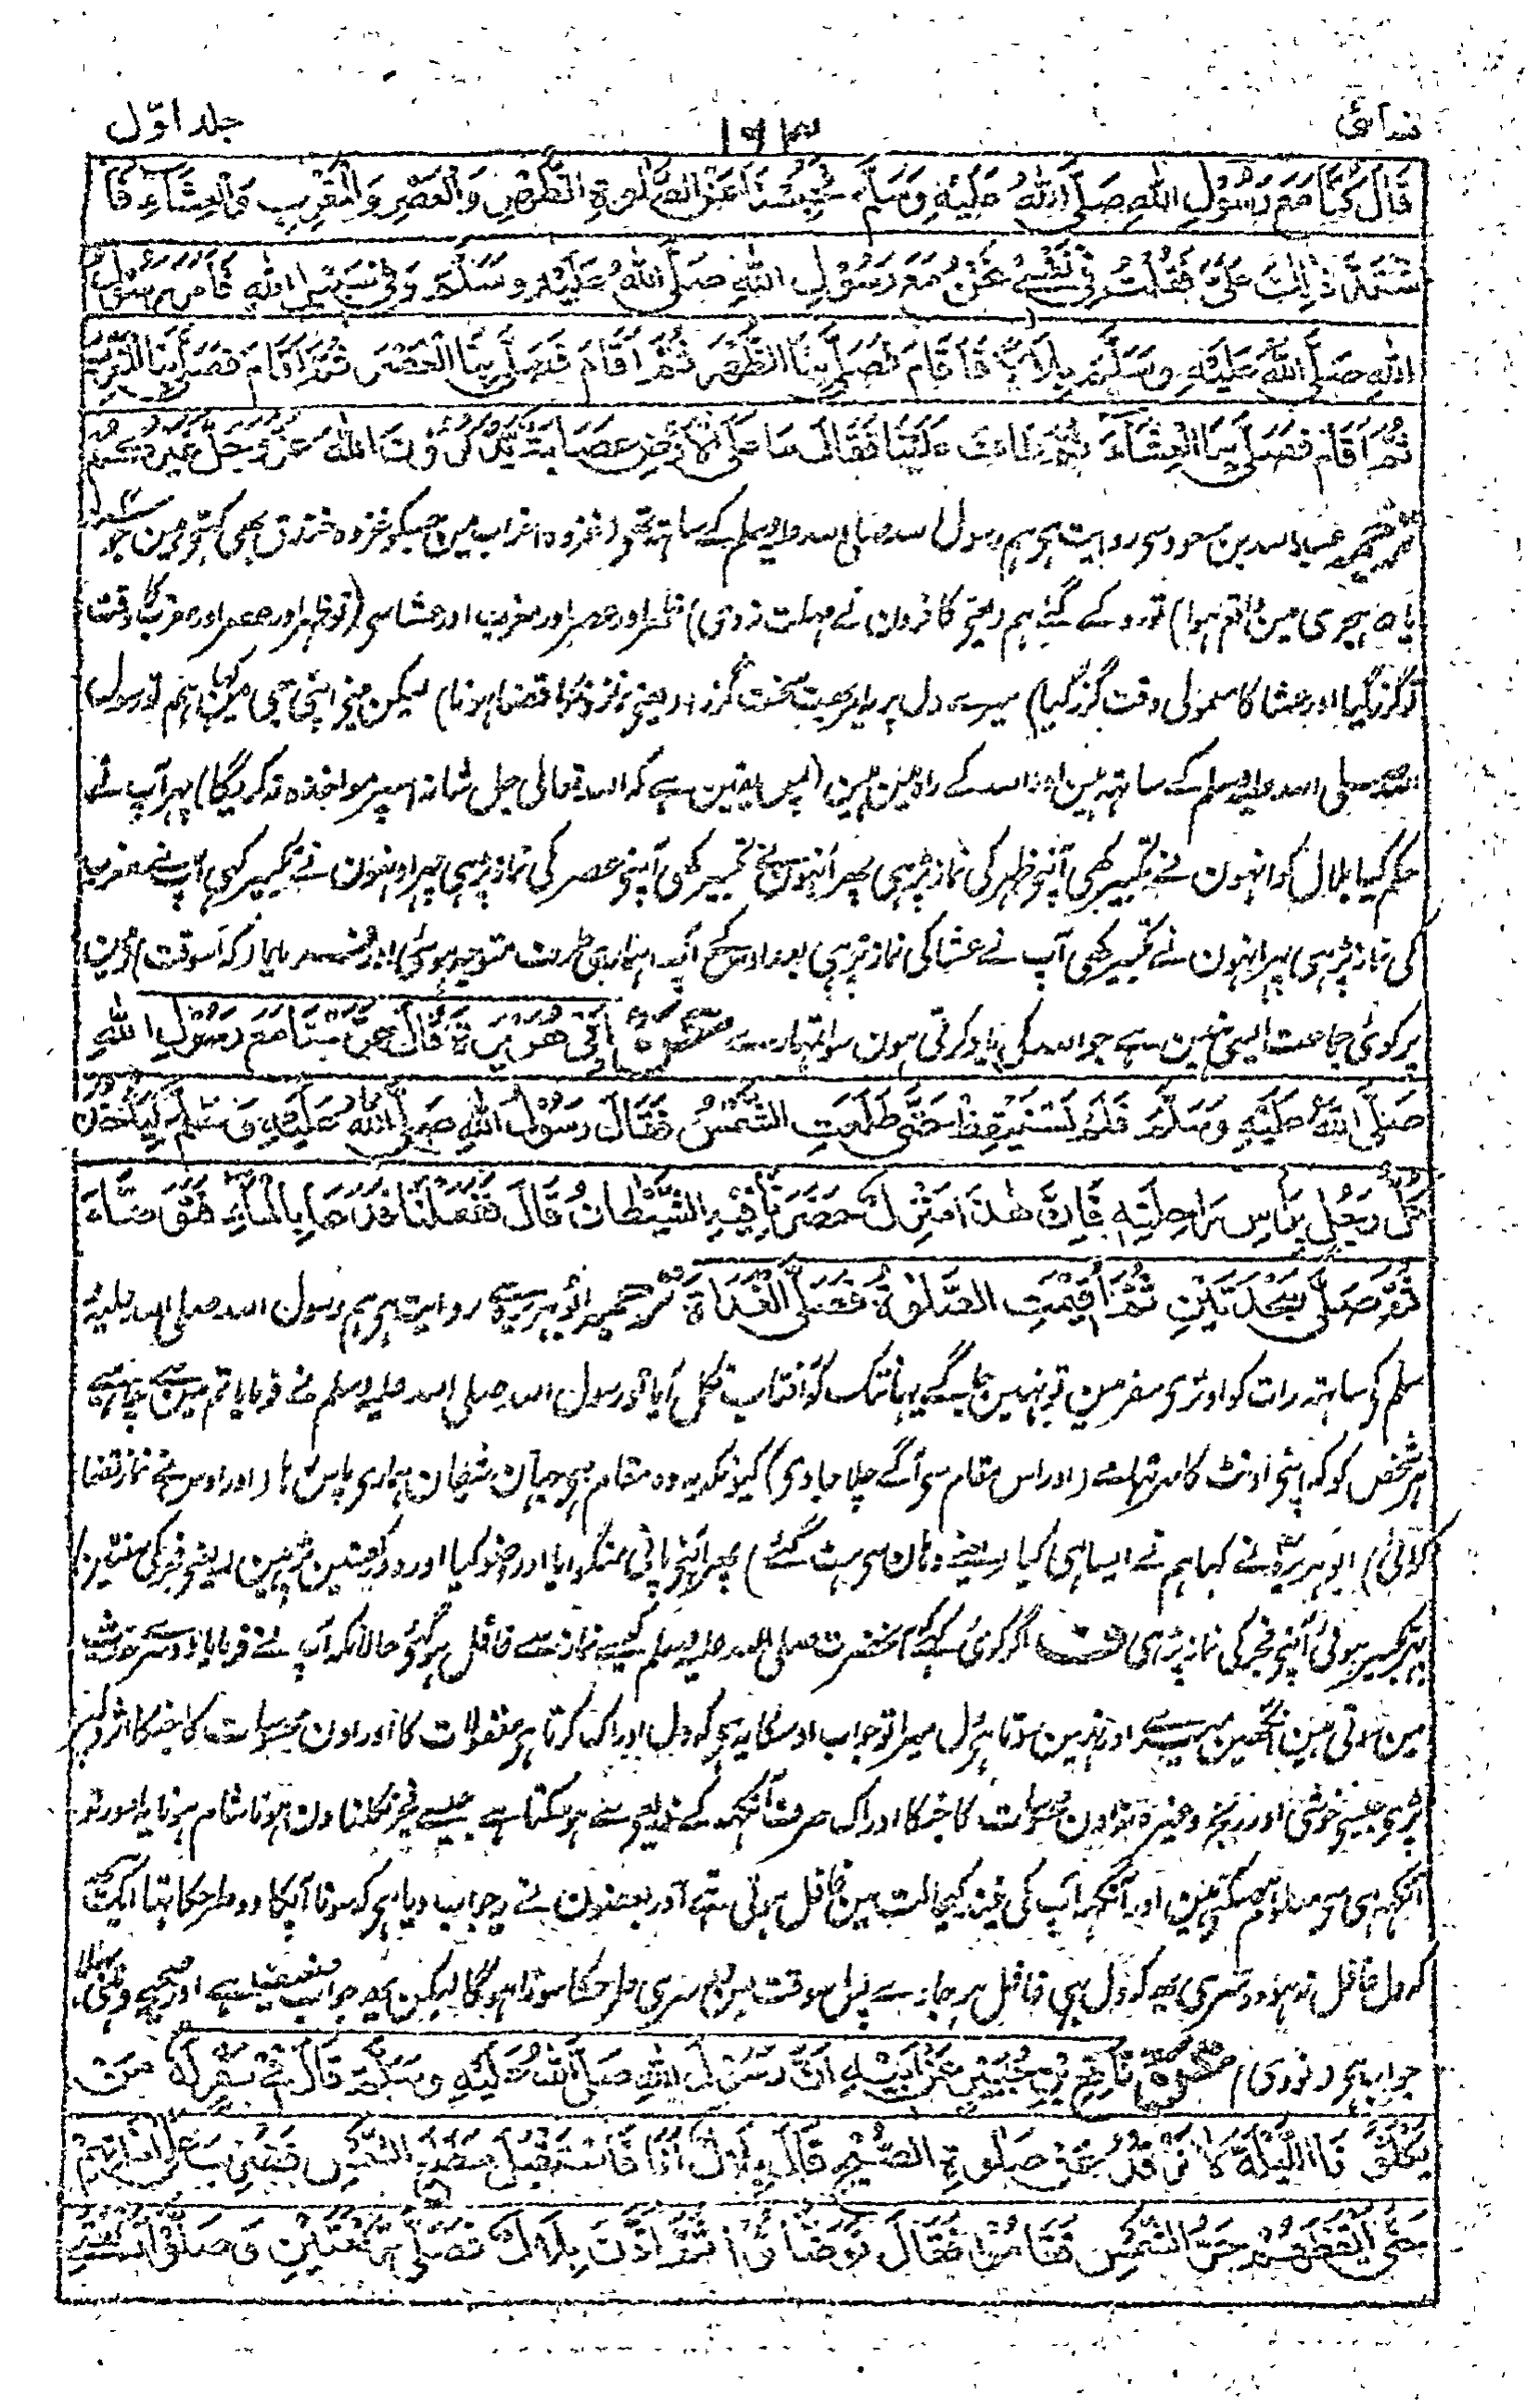 نسائی ۱۹۳ جلد اوّل
قَالَ كُنَّا مَعَ رَسُوْلِ اللهِ صَلَّى اللهُ عَلَيْهِ وَسَلَّمَ فَحُبِسْنَا عَنْ صَلٰوةِ الظُّهْرِ وَالْعَصْرِ وَالْمَغْرِبِ وَالْعِشَاءِ فَا
شْتَدَّ ذٰلِكَ عَلَىَّ فَقُلْتُ فِىْ نَفْسِىْ نَحْنُ مَعَ رَسُوْلِ اللهِ صَلَّى اللهُ عَلَيْهِ وَسَلَّمَ وَفِىْ سَبِيْلِ اللهِ فَاَمَرَ رَسُوْلُ
اللهِ صَلَّى اللهُ عَلَيْهِ وَسَلَّمَ بِلَالًا فَاَقَامَ فَصَلّٰى بِنَا الظُّهْرَ ثُمَّ اَقَامَ فَصَلّٰى بِنَا الْعَصْرَ ثُمَّ اَقَامَ فَصَلّٰى بِنَا الْمَغْرِبَ
ثُمَّ اَقَامَ فَصَلّٰى بِنَا الْعِشَاءَ ثُمَّ طَافَ عَلَيْنَا فَقَالَ مَا عَلَى الْاَرْضِ عِصَابَةٌ يَّذْكُرُوْنَ اللهَ عَزَّ وَجَلَّ غَيْرُكُمْ
ترجمہ عبداللہ بن مسعود سی روایت ہی ہم رسول اللہ صلی اللہ علیہ وسلم کے ساتہ تہی (غزوہ احزاب مین جسکو غزوہ خندق بھی کہتی ہین جو
یا ۵ ہجری مین واقع ہوا) تو روکے گئے ہم (یعنی کافرون نے مہلت نہ دی) ظہر اور عصر اور مغرب اور عشا سی (تو ظہر اور عصر اور مغرب کا وقت
گزر گیا اور عشا کا معمولی وقت گزر گیا) میرے دل پر یہ امر بہت سخت گزرا (یعنی نمازونکا قضا ہونا) لیکن مینی اپنی جی مین کہا ہم تو رسول
اللہ صلی اللہ علیہ وسلم کے ساتہ ہین اور اللہ کے راہ مین ہین (پس یقین ہے کہ اللہ تعالی جل شانہ اسپر مواخذہ نہ کریگا) پہر آپ نے
حکم کیا بلال کو انہون نے تکبیر کہی آپنی ظہر کی نماز پڑہی پھر انہون نے تکبیر کہی آپنی عصر کی نماز پڑہی پہر اونہون نے تکبیر کہی آپ نے مغرب
کی نماز پڑہی پہر انہون نے تکبیر کہی آپ نے عشا کی نماز پڑہی بعد اوسکے آپ ہماری طرف متوجہ ہوئی اور فرمایا (کہ اسوقت) زمین
پر کوئی جماعت ایسی نہین ہے جو اللہ کی یاد کرتی ہون سوا تمہارے عَنْ اَبِىْ هُرَيْرَةَ قَالَ عَرَّسْنَا مَعَ رَسُوْلِ اللهِ
صَلَّى اللهُ عَلَيْهِ وَسَلَّمَ فَلَمْ نَسْتَيْقِظْ حَتّٰى طَلَعَتِ الشَّمْسُ فَقَالَ رَسُوْلُ اللهِ صَلَّى اللهُ عَلَيْهِ وَسَلَّمَ لِيَأْخُذْ
كُلُّ رَجُلٍ بِرَأْسِ رَاحِلَتِهٖ فَاِنَّ هٰذَا مَنْزِلٌ حَضَرَنَا فِيْهِ الشَّيْطَانُ قَالَ فَفَعَلْنَا فَدَعَا بِالْمَاءِ فَتَوَضَّاءَ
ثُمَّ صَلّٰى سَجْدَتَيْنِ ثُمَّ اُقِيْمَتِ الصَّلٰوةُ فَصَلَّى الْغَدَاةَ ترجمہ ابوہریرہ سے روایت ہی ہم رسول اللہ صلی اللہ علیہ
سلم کی ساتہ رات کو اوتری سفر مین تو نہین جاگے یہانتک کو آفتاب نکل آیا تو رسول اللہ صلی اللہ علیہ وسلم نے فرمایا تم مین سے چاہیے
ہر شخص کو کہ اپنی اونٹ کا سر تہامے (اور اس مقام سی آگے چلا جاوی) کیونکہ یہ وہ مقام ہی جہان شیطان ہماری پاس رہا (اور اوس نے نماز قضا
کرائی) ابوہریرہ نے کہا ہم نے ایسا ہی کیا (یعنے وہان سی ہٹ گئے) پھر آپنی پانی منگوایا اور وضو کیا اور دو رکعتین پڑہین (یعنی فجر کی سنتین)
پہر تکبیر ہوئی آپنی فجر کی نماز پڑہی ف اگر کوئی کہے آنحضرت صلی اللہ علیہ وسلم کیسے نماز سے غافل ہو گئی حالانکہ آپ نے فرمایا دوسرے حدیث
مین سوتی ہین آنکہین میرے اور نہین سوتا ہی دل میرا تو جواب اوسکا یہ ہی کہ دل ادراک کرتا ہی معقولات کا اور اون محسوسات کا جنکا اثر دلپر
پڑی جیسی خوشی اور رنج وغیرہ نہ اون محسوسات کا جنکا ادراک صرف آنکہہ کے ذریعے سے ہو سکتا ہے جیسے فجر نکلنا دن ہونا شام ہونا یہ امور تو
آنکہہ ہی سی معلوم ہو سکتی ہین اور آنکہہ آپ کی نیند کیحالت مین غافل ہوتی تہے اور بعضون نے یہ جواب دیا ہی کہ سونا آپکا دو طرحکا تہا ایک
کہ دل غافل نہ ہو دوسری یہ کہ دل بھی غافل ہو جاوے پس اسوقت مین دوسری طرحکا سونا ہوگا لیکن یہ جواب ضعیف ہے اور صحیح وہی پہلا
جواب ہی (نووی) عَنْ نَافِعِ بْنِ جُبَيْرٍ عَنْ اَبِيْهِ اَنَّ رَسُوْلَ اللهِ صَلَّى اللهُ عَلَيْهِ وَسَلَّمَ قَالَ فِىْ سَفَرٍ لَّهٗ مَنْ
يَكْلَؤُنَا اللَّيْلَةَ لَا نَرْقُدُ عَنْ صَلٰوةِ الصُّبْحِ قَالَ بِلَالٌ اَنَا فَاسْتَقْبَلَ مَطْلَعَ الشَّمْسِ فَضُرِبَ عَلٰى اٰذَانِهِمْ
حَتّٰى اَيْقَظَهُمْ حَرُّ الشَّمْسِ فَقَامُوْا فَقَالَ تَوَضَّأُوْا ثُمَّ اَذَّنَ بِلَالٌ فَصَلّٰى رَكْعَتَيْنِ وَصَلَّوْا رَكْعَتَىِ